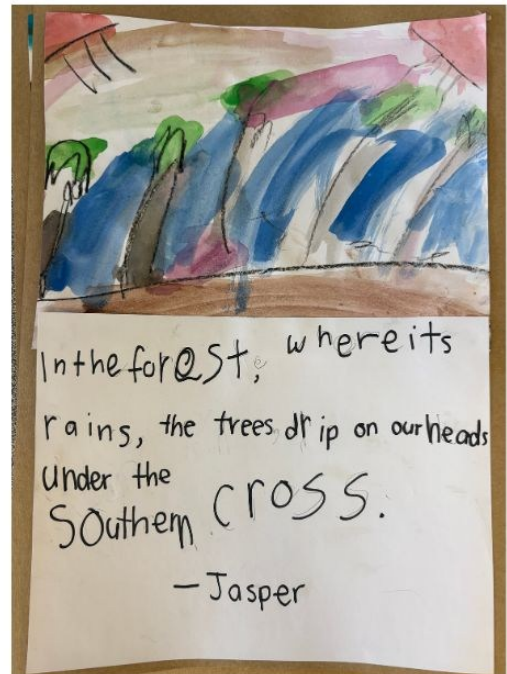 In the forest, where its
rains, the trees drip on our heads
under the
Southern cross.
– Jasper